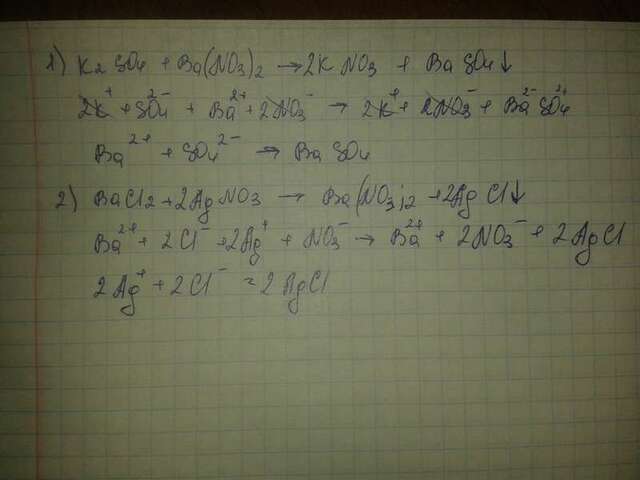 1) K2SO4 + Ba(NO3)2 → 2KNO3 + BaSO4↓
2K⁺ + SO4²⁻ + Ba²⁺ + 2NO3⁻ → 2K⁺ + 2NO3⁻ + Ba²⁻SO4²⁺
Ba²⁺ + SO4²⁻ → BaSO4
2) BaCl2 + 2AgNO3 → Ba(NO3)2 + 2AgCl↓
Ba²⁺ + 2Cl⁻ + 2Ag⁺ + NO3⁻ → Ba²⁺ + 2NO3⁻ + 2AgCl
2Ag⁺ + 2Cl⁻ = 2AgCl